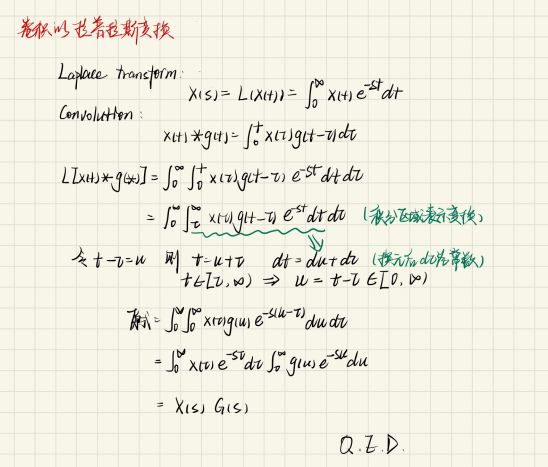 卷积的拉普拉斯变换
Laplace transform:
X(s) = L(x(t)) = ∫₀^∞ x(t) e^{-st} dt
Convolution:
x(t) * g(t) = ∫₀^t x(τ) g(t-τ) dτ
L[x(t) * g(t)] = ∫₀^∞ ∫₀^t x(τ) g(t-τ) e^{-st} dt dτ
= ∫₀^∞ ∫_τ^∞ x(τ) g(t-τ) e^{-st} dt dτ (积分区域表示变换)
令 t-τ=u 则 t=u+τ dt=du+dτ (换元后 dτ为常数)
t∈[τ,∞) ⇒ u=t-τ∈[0,∞)
原式 = ∫₀^∞ ∫₀^∞ x(τ) g(u) e^{-s(u-τ)} du dτ
= ∫₀^∞ x(τ) e^{-sτ} dτ ∫₀^∞ g(u) e^{-su} du
= X(s) G(s)
Q.E.D.